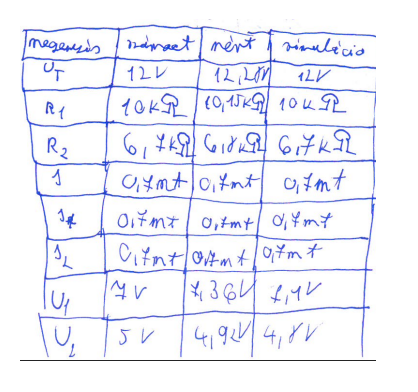 megnevezés számolt mért szimuláció
UT 12V 12,28V 12V
R1 10kΩ 10,15kΩ 10kΩ
R2 6,7kΩ 6,8kΩ 6,7kΩ
I 0,7mA 0,7mA 0,7mA
I1 0,7mA 0,7mA 0,7mA
I2 0,7mA 0,7mA 0,7mA
U1 7V 7,36V 7,1V
U2 5V 4,92V 4,8V